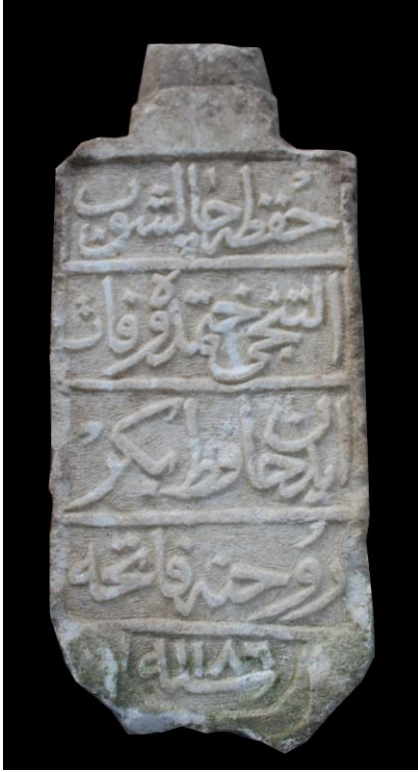 حفظه چالشوب
التنجی ختمده وفات
ایدن حافظ بکر
روحنه فاتحه
سنه ١١٨٦